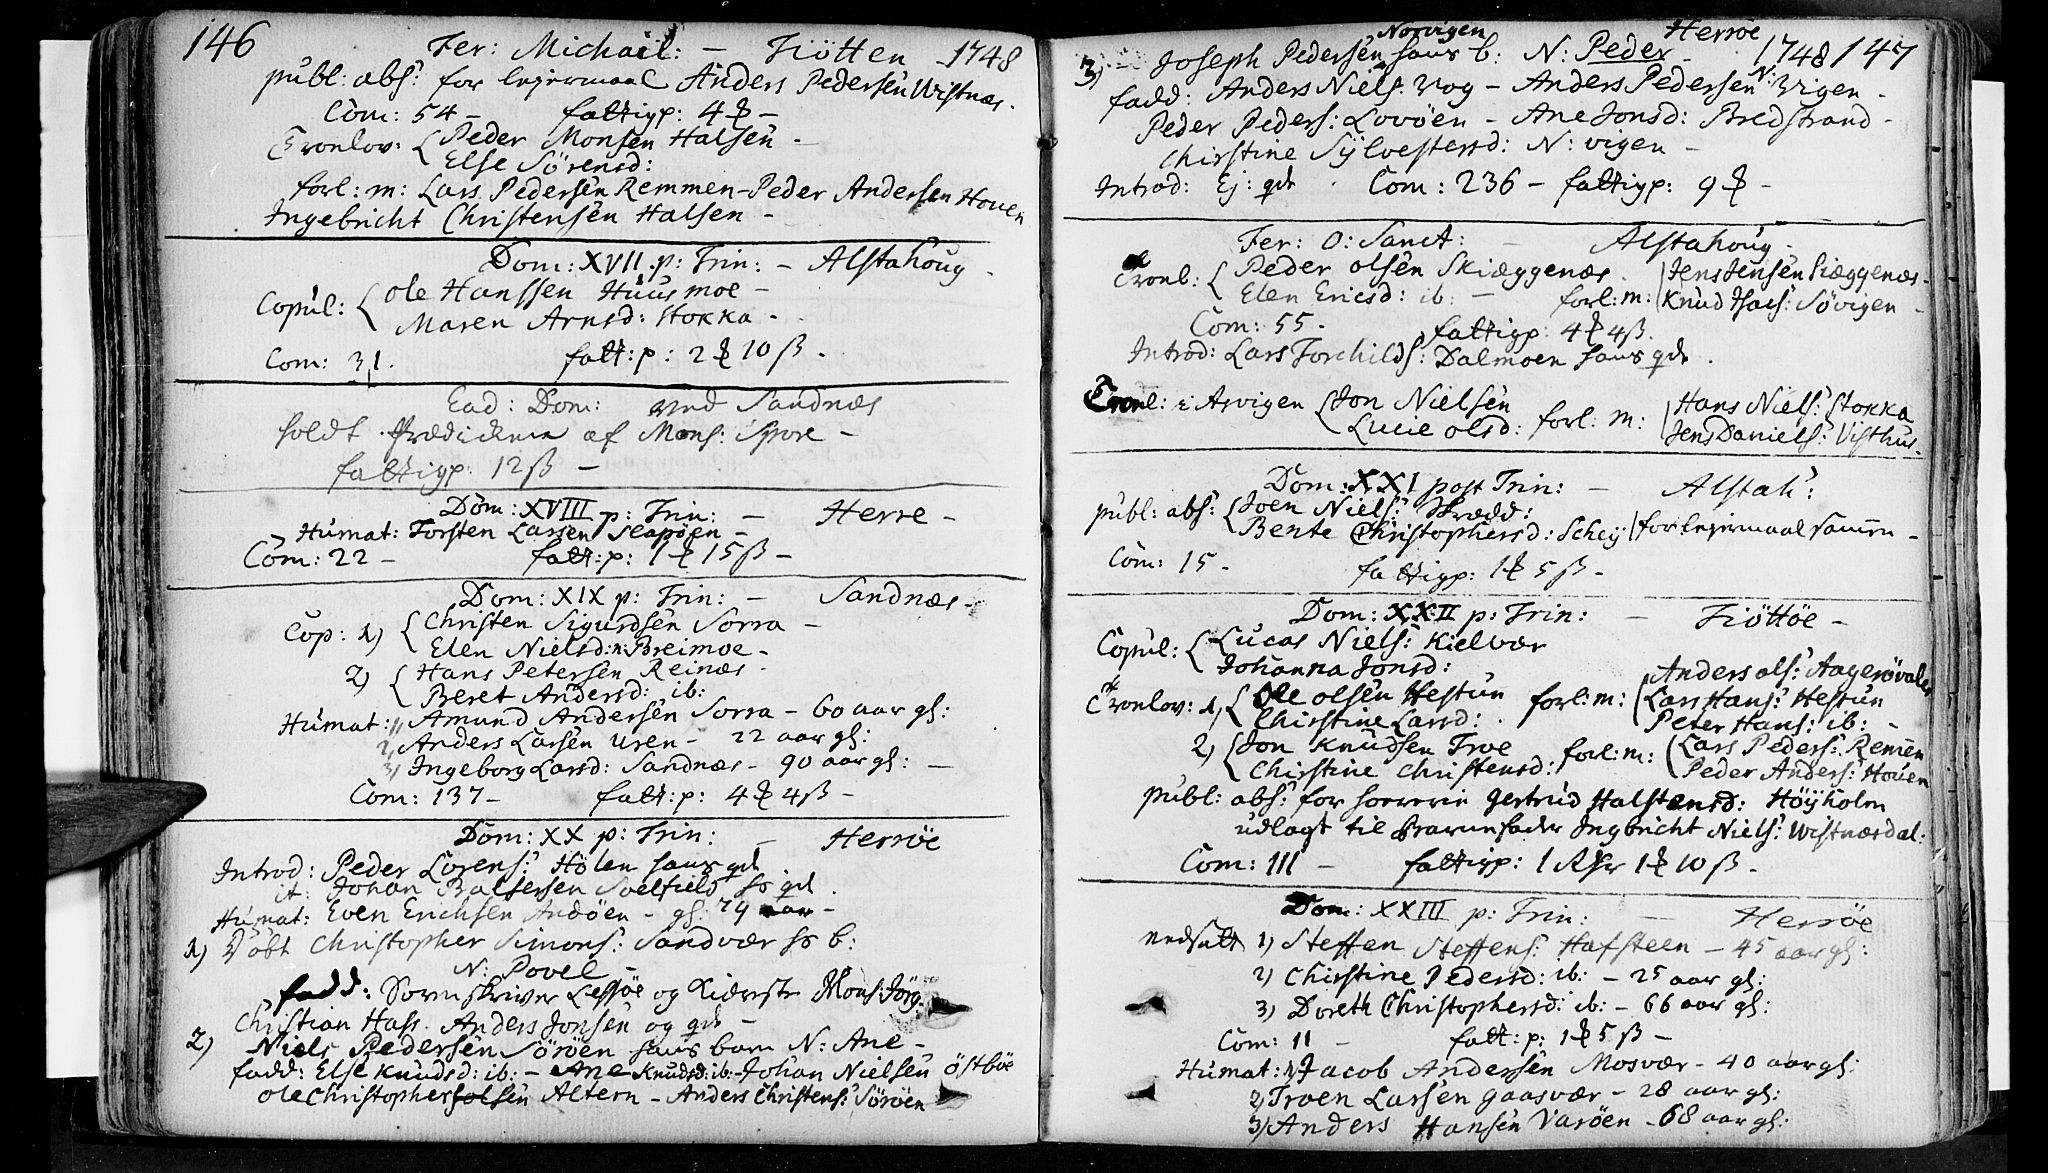 146
Fer: Michail: — Tiötten 1748
publ: abs: for lejermaal Anders Pedersen Wistnæs.
Com: 54 — fattigp: 4 —
Tronlov: { Peder Monsen Halsen —
Else Sörensd:
forl: m: Lars Pedersen Remmen – Peder Andersen Houen
Ingebricht Christensen Halsen —
Dom: XVII p: Trin: — Alstahoug
Copul: { Ole Hanssen Huusmoe —
Maren Arnsd: Stokka —
Com: 31. fatt: p: 2 10 ß.
Ead: Dom: ved Sandnæs
holdt Prædicken af Mons: Spore —
fattigp: 12 ß —
Dom: XVIII p: Trin: — Herre —
Humat: Torsten Larsen Slapöen —
Com: 22 — fatt: p: 1 15 ß —
Dom: XIX p: Trin: — Sandnæs —
Cop: 1) { Christen Sigurdsen Sorra —
Elen Nielsd: Breimoe —
2) { Hans Petersen Reinæs
Beret Andersd: ib:
Humat: 1) Amund Andersen Sorra — 60 aar gl:
2) Anders Larsen Uren — 22 aar gl:
3) Ingeborg Larsd: Sandnæs — 90 aar gl: —
Com: 137 — fatt: p: 4 4 ß —
Dom: XX p: Trin: — Herröe
Introd: Peder Lorens: Hölen hans qd
it: Johan Baltsersen Soelfield hs qd.
Humat: Even Erichsen Andöen — gl: 79 aar —
1) Döbt Christopher Simons: Sandvær hs b:
N: Povel —
fadd: Sorenskriver Lessöe og Kiæreste Mons: Jörg.
Christian Hass. Anders Jonsen og qd —
2) Niels Pedersen Söröen hans barn N: Ane —
fadd: Else Knudsd: ib: — Ane Knudsd: ib: – Johan Nielsen Östböe
Ole Christophersen Altern — Anders Christens: Söröen
1748 147
3) Joseph Pedersen Norvigen hans b: N: Peder — Herröe
fadd: Anders Niels: Vog — Anders Pedersen N: Vigen —
Peder Peders: Lovöen — Ane Jonsd: Bredstrand —
Chirstine Sylvestersd: N: vigen —
Introd: Ej: qd. Com: 236 — fattigp: 9 —
Fer: O: Sanct: — Alstahoug —
Tronl: { Peder Olsen Skiæggenæs. | Jens Jensen Skiæggenæs.
Elen Ericsd: ib: — forl: m: | Knud Isacs: Sövigen —
Com: 55. fattigp: 4 4 ß.
Introd: Lars Torchilds: Dalmoen hans qd.
Tronl: i Arvigen { Jon Nielsen forl: m: | Hans Niels: Stokka
Lucie Olsd: | Jens Daniels: Visthus.
Dom: XXI post Trin: — Alstah:
publ: abs: { Joen Niels: Skrædd:
Bente Christophersd: Schey | for lejermaal samen —
Com: 15. fattigp: 1 5 ß —
Dom: XXII p: Trin: — Tiöttöe —
Copul: { Lucas Niels: Kielvær
Johanna Jonsd:
Tronlov: 1) { Ole Olsen Hestun forl: m: { Anders Ols: Aagerövalen
Chirstine Larsd: Lars Hans: Hestun
Peter Hans: ib: —
2) { Jon Knudsen Troe forl: m: { Lars Peders: Remen
Chirstine Christensd: Peder Anders: Houen
publ: abs: for horerie Gertrud Halstensd: Höyholm
udlagt til Barnefader Ingbricht Niels: Wistnæsdal:
Com: 111 — fattigp: 1 Rdr 1 10 ß.
Dom: XXIII p: Trin: — Herröe
nedsatt 1) Steffen Steffens: Hafsteen — 45 aar gl:
2) Chirstine Pedersd: ib: — 25 aar gl:
3) Doreth Christophersd: ib: — 66 aar gl:
Com: 11 — fatt: p: 1 5 ß —
Humat: 1) Jacob Andersen Mosvær — 40 aar gl:
2) Troen Larsen Gaasvær — 28 aar gl:
3) Anders Hansen Varöen — 68 aar gl: